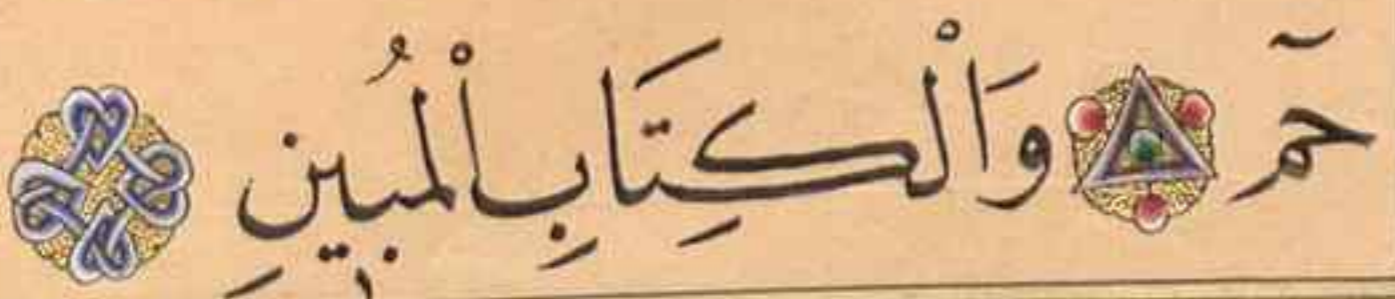 حٓمٓ وَالْكِتَابِ الْمُبِينِ